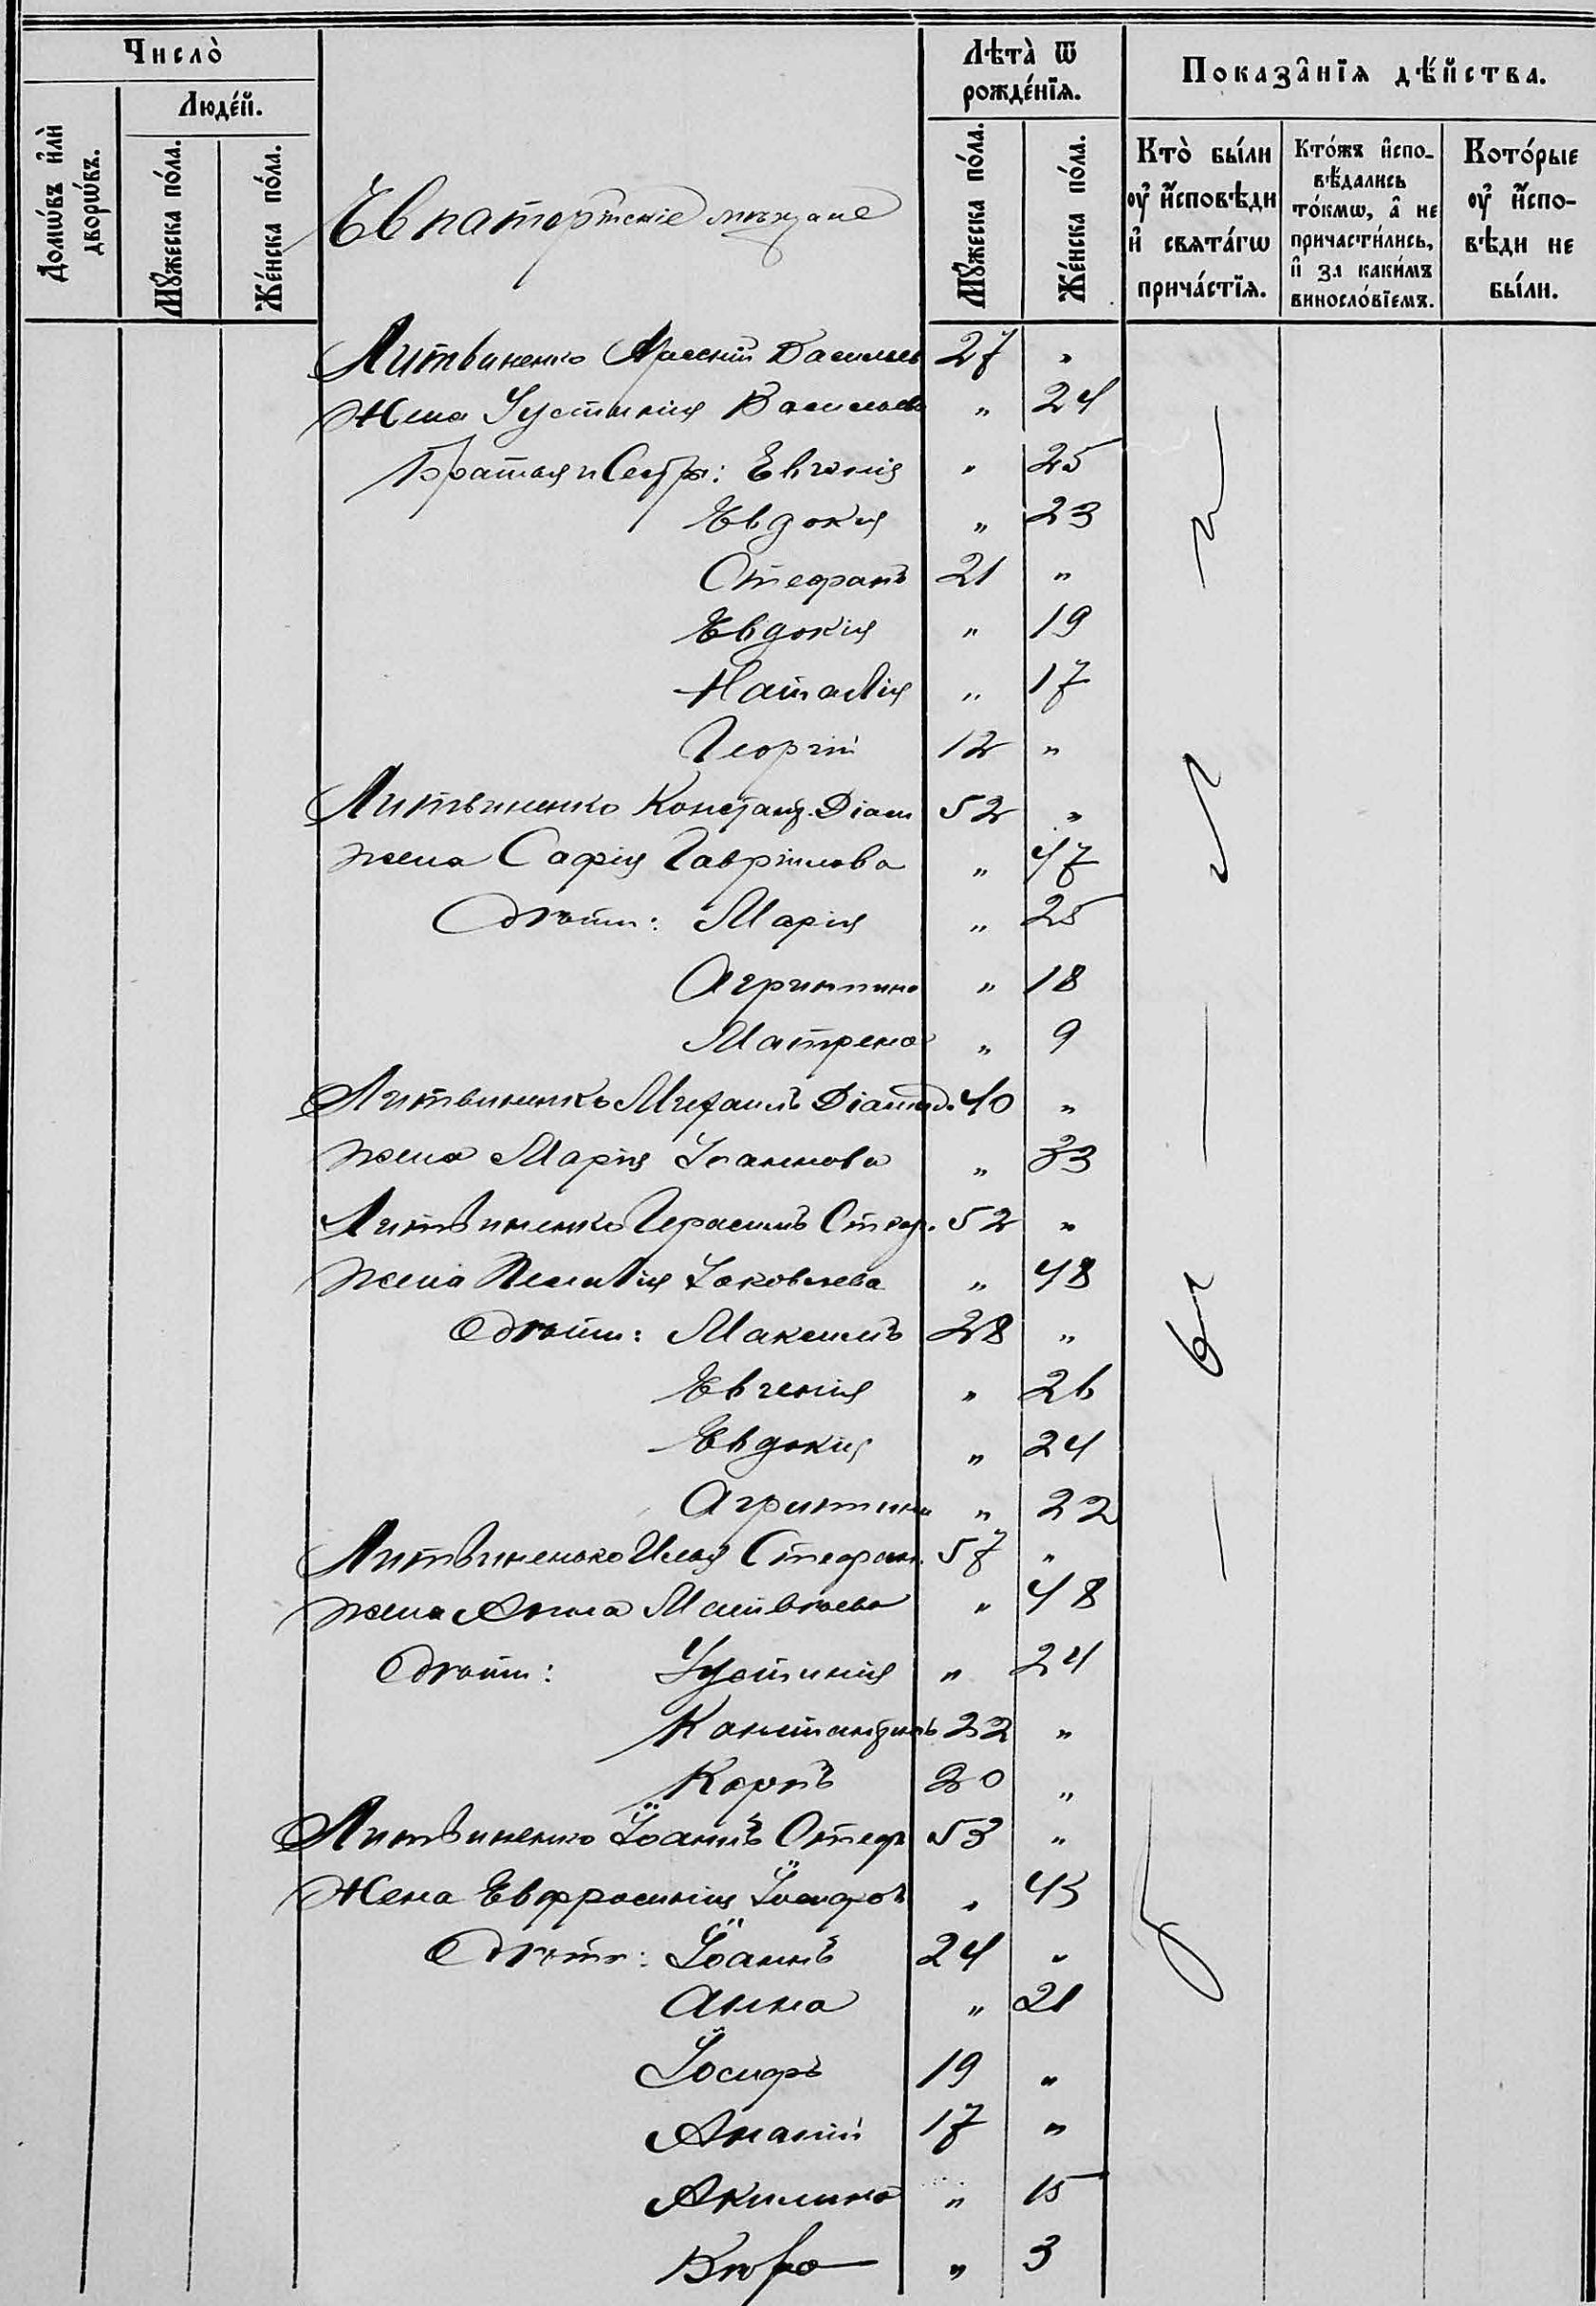 Число̀
Людéй.
Домѡ́въ и҆лѝ дворѡ́въ.
Мꙋ́жеска пóла.
Жéнска пóла.
Лѣта̀ ѿ рождéнїѧ.
Мꙋ́жеска пóла.
Жéнска пóла.
Показа̑нїѧ дѣ́йства.
Кто̀ бы́ли ᲂу҆ и҆́сповѣди и҆ свѧта́гѡ прича́стїѧ.
Кто́жъ и҆спо-
вѣ́дались
то́кмѡ, а҆ не
причасти́лись,
и҆ за каки́мъ
винослóвїемъ.
Котóрые
ᲂу҆ и҆́спо-
вѣди не
бы́ли.
Евпаторiйскiе мѣщане
Литвиненко Арсенiй Васильев 27 "
Жена Iустинiя Васильева " 24
Братья и Сестр: Евгенiя " 25
Евдокiя " 23
Стефанъ 21 "
Евдокiя " 19
Наталiя " 17
Георгiй 12 "
Литвиненко Констант. Дiом 52 "
жена Софiя Гаврiилова " 47
Дѣти: Марiя " 25
Агрипина " 18
Матрена " 9
Литвиненко Михаилъ Дiомид. 40 "
жена Марiя Iоаннова " 33
Литвиненко Герасимъ Стеф. 52 "
жена Пелагiя Iаковлева " 48
Дѣти: Максимъ 28 "
Евгенiя " 26
Евдокiя " 24
Агрипина " 22
Литвиненко Илья Стефан. 57 "
жена Анна Матвѣева " 48
Дѣти: Iустинiя " 24
Константинъ 22 "
Карпъ 20 "
Литвиненко Iоаннъ Стеф 53 "
Жена Евфросинiя Iосифов " 43
Дѣти: Iоаннъ 24 "
Анна " 21
Iосифъ 19 "
Ананiй 17 "
Акилина " 15
Вѣра " 3